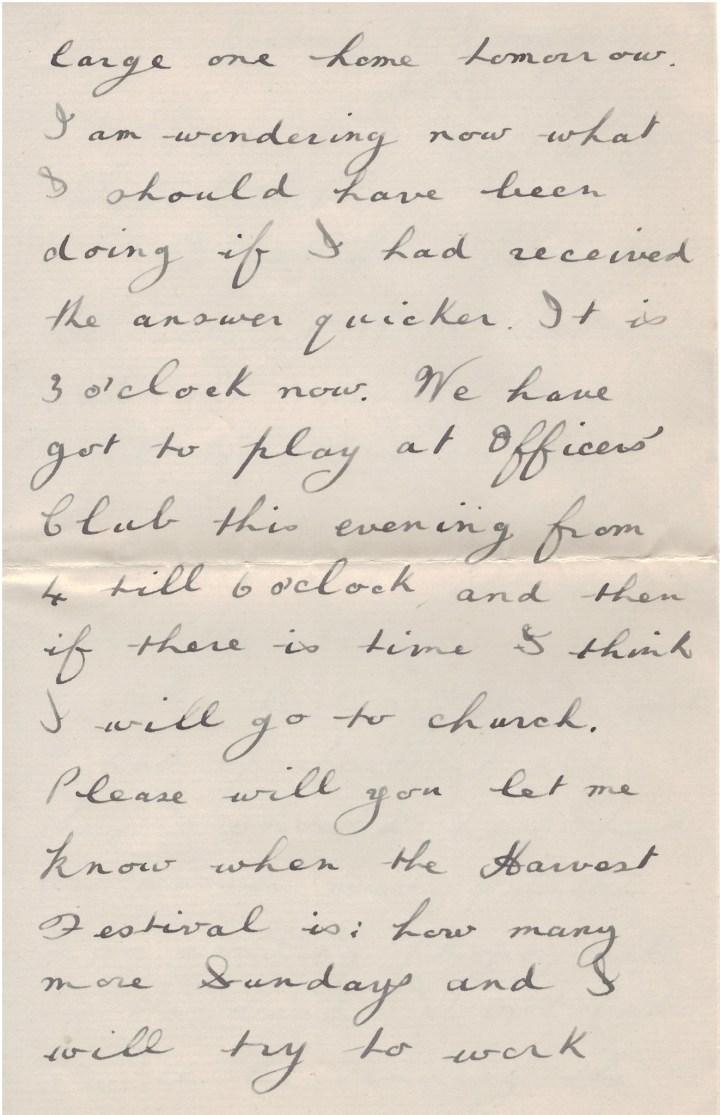 large one home tomorrow.
I am wondering now what
I should have been
doing if I had received
the answer quicker. It is
3 o'clock now. We have
got to play at Officers'
Club this evening from
4 till 6 o'clock and then
if there is time I think
I will go to church.
Please will you let me
know when the Harvest
Festival is; how many
more Sundays and I
will try to work